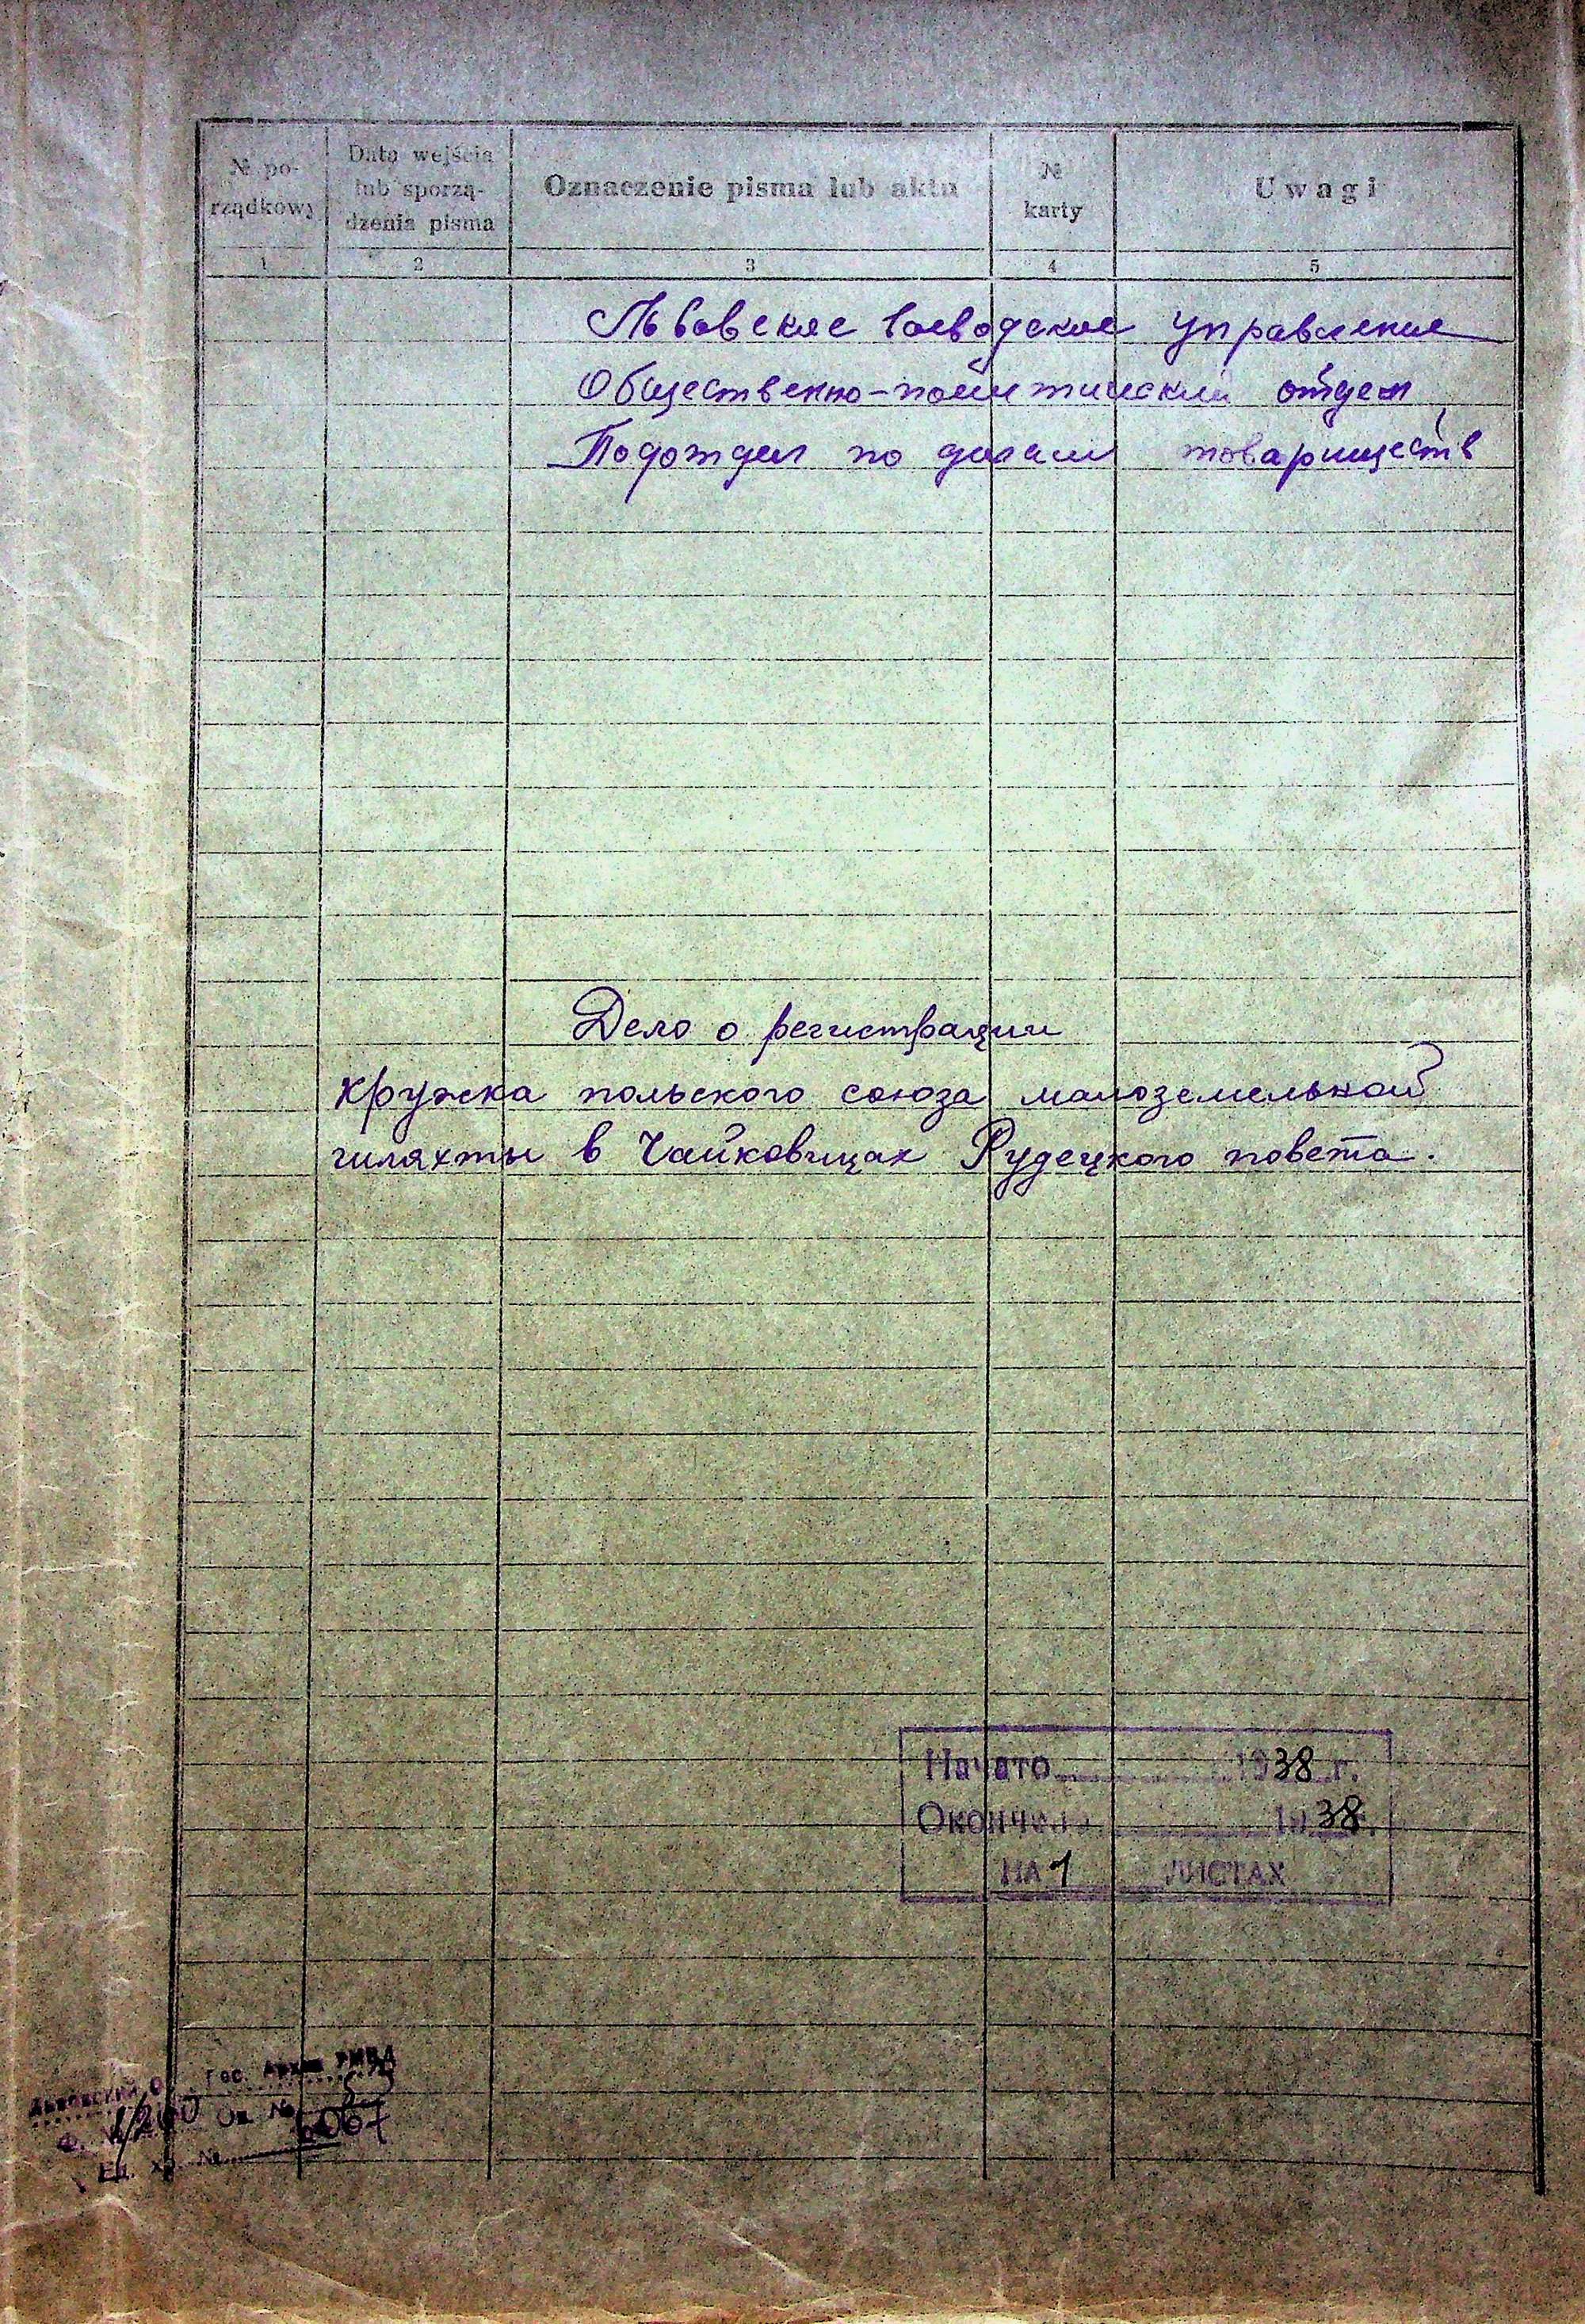 № po-
rządkowy
Data wejścia
lub sporzą-
dzenia pisma
Oznaczenie pisma lub aktu
№
karty
Uwagi
1 2 3 4 5
Львовское воеводское управление
Общественно-политический отдел
Подотдел по делам товариществ
Дело о регистрации
кружка польского союза малоземельной
шляхты в Чайковицах Рудецкого повета.
Начато 1938 г.
Окончено 1938 г.
НА 1 ЛИСТАХ
Львовский Гос. Архив
Ф. № Оп. №
Ед. хр. №